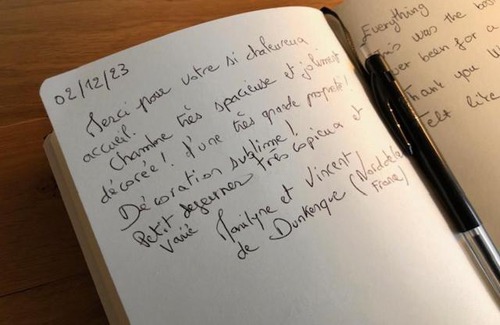 02/12/23
Merci pour votre si chaleureux
accueil.
Chambre très spacieuse et joliment
décorée! d'une très grande propreté!
Décoration sublime!
Petit déjeuner très copieux et
varié
Marilyne et Vincent
de Dunkerque (Nord de la
France)
Everything
this was the
ever been for a
thank you
felt like